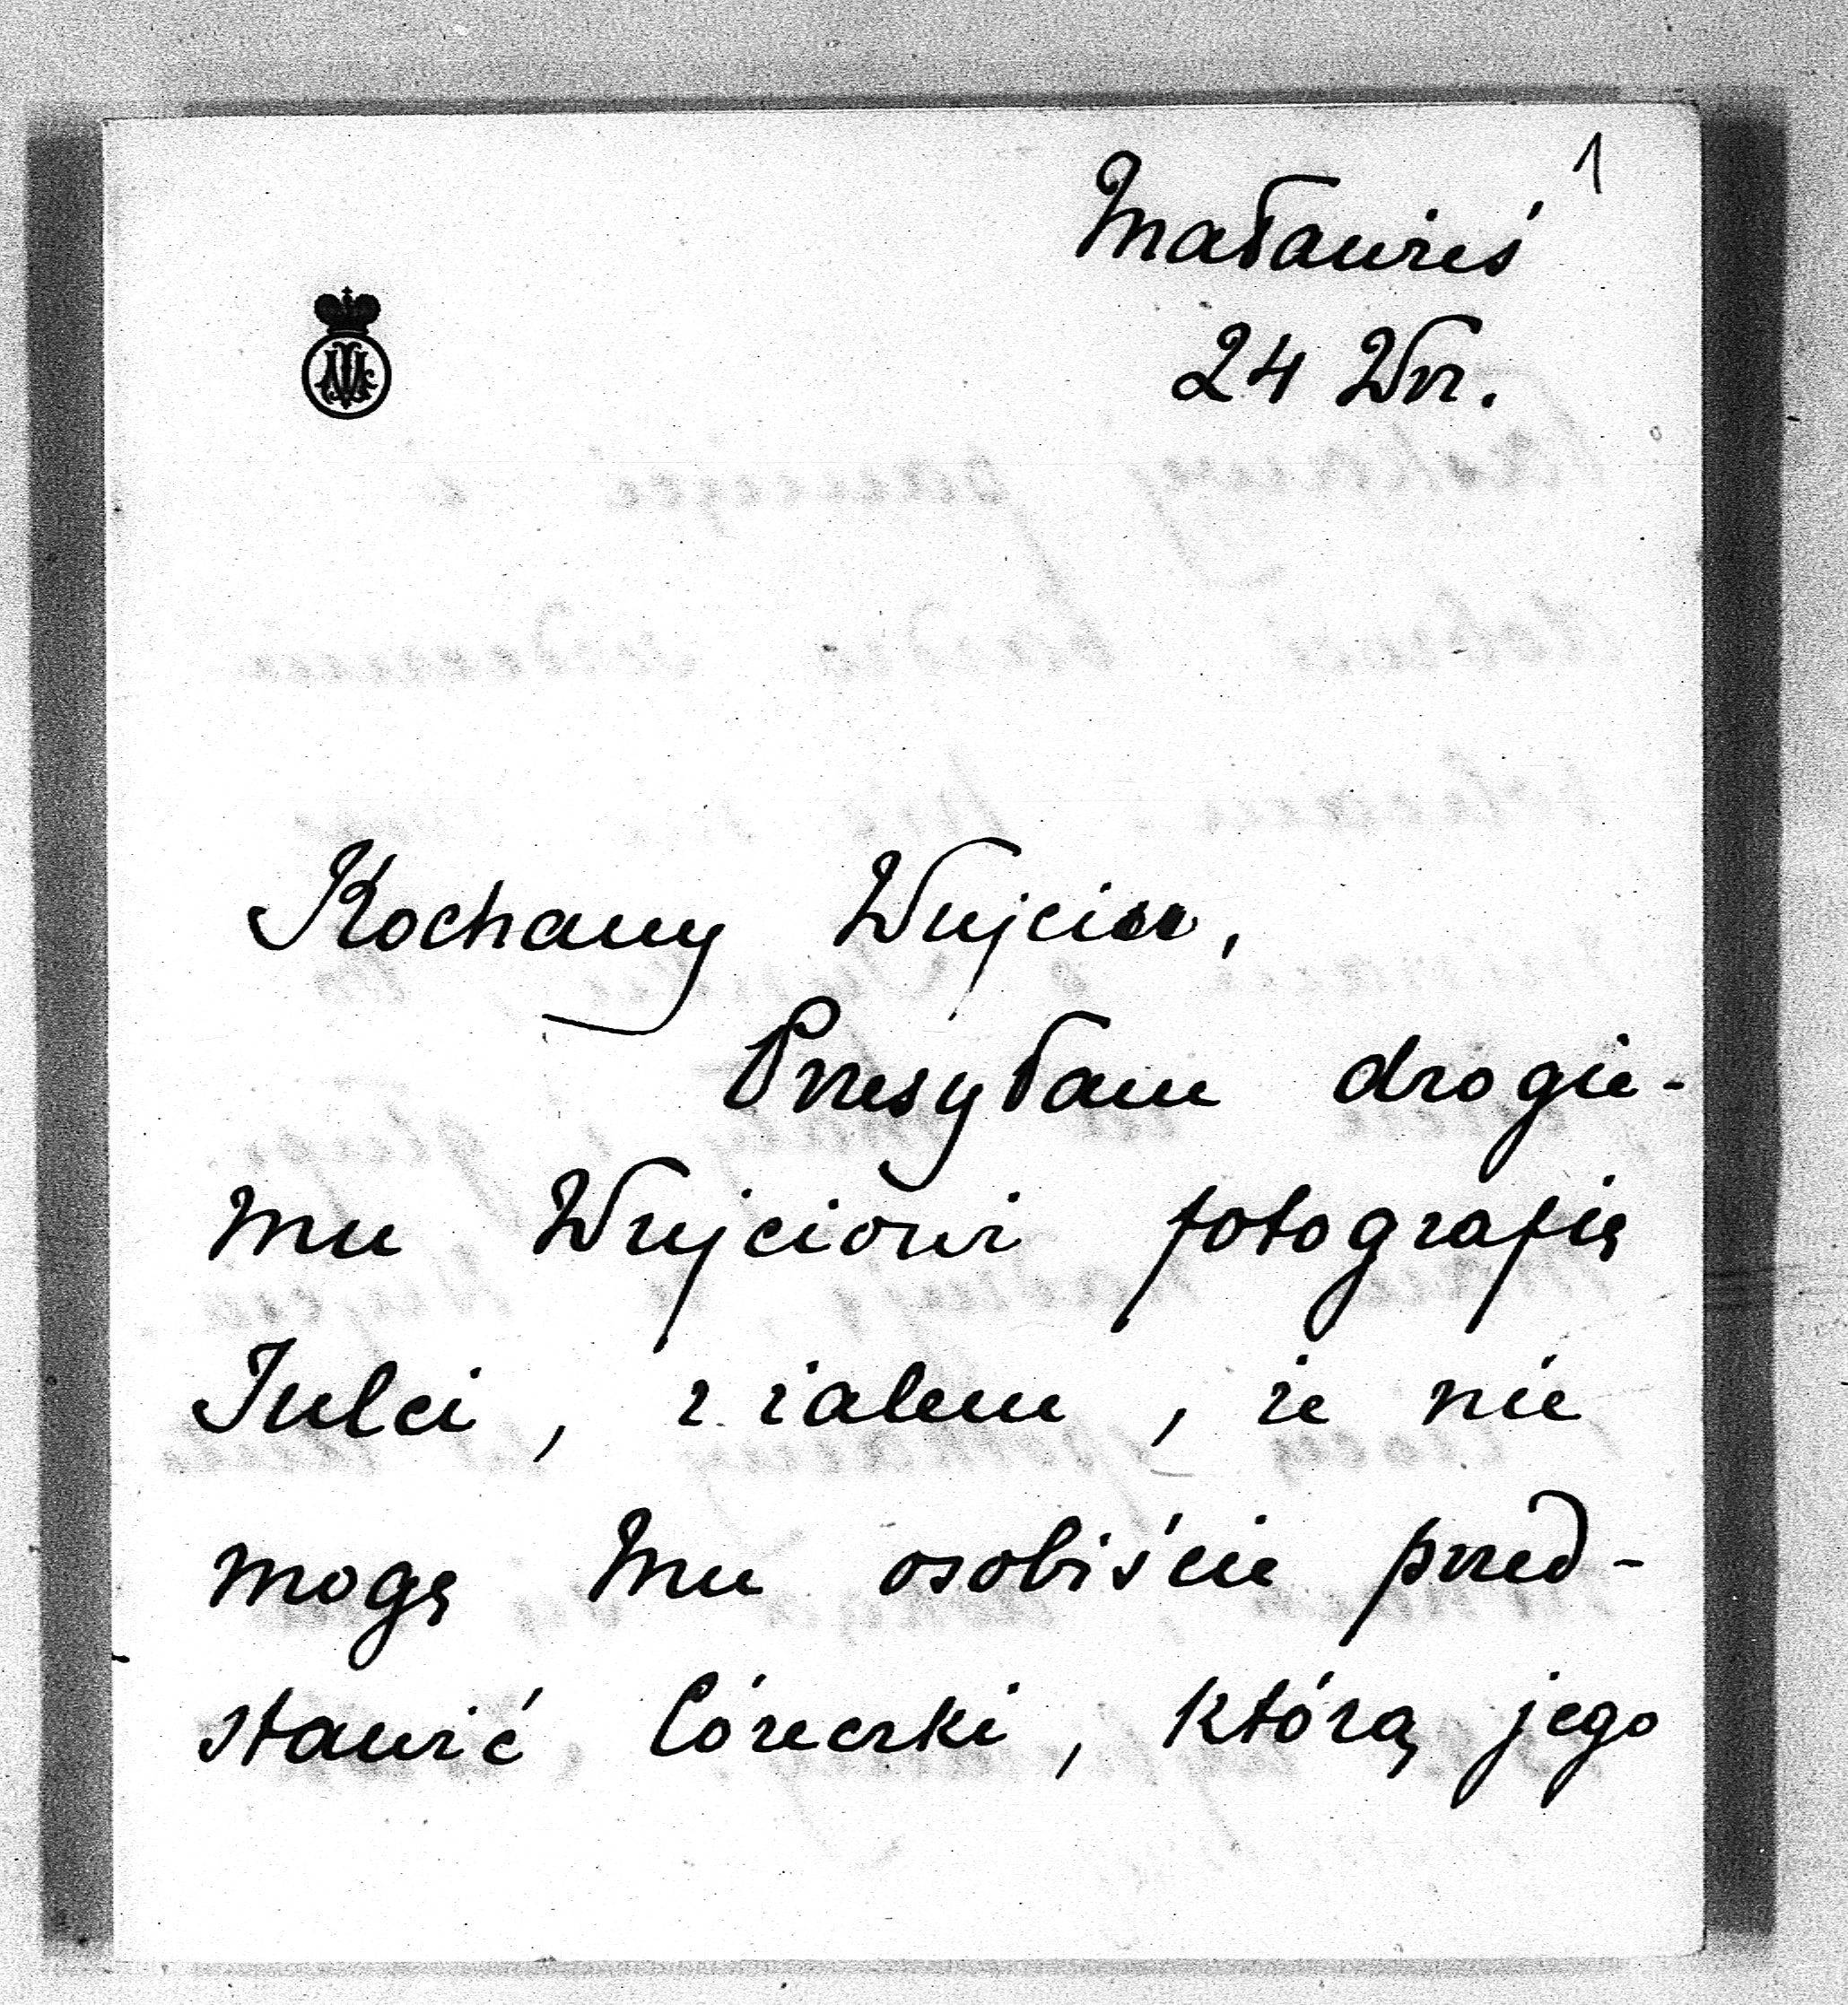 1
Małauzieś
24 Wrz.
Kochany Wujciu,
Przesyłam drogie-
mu Wujciowi fotografię
Julci, z żalem, że nie
mogę Mu osobiście przed-
stawić Córeczki, którą jego